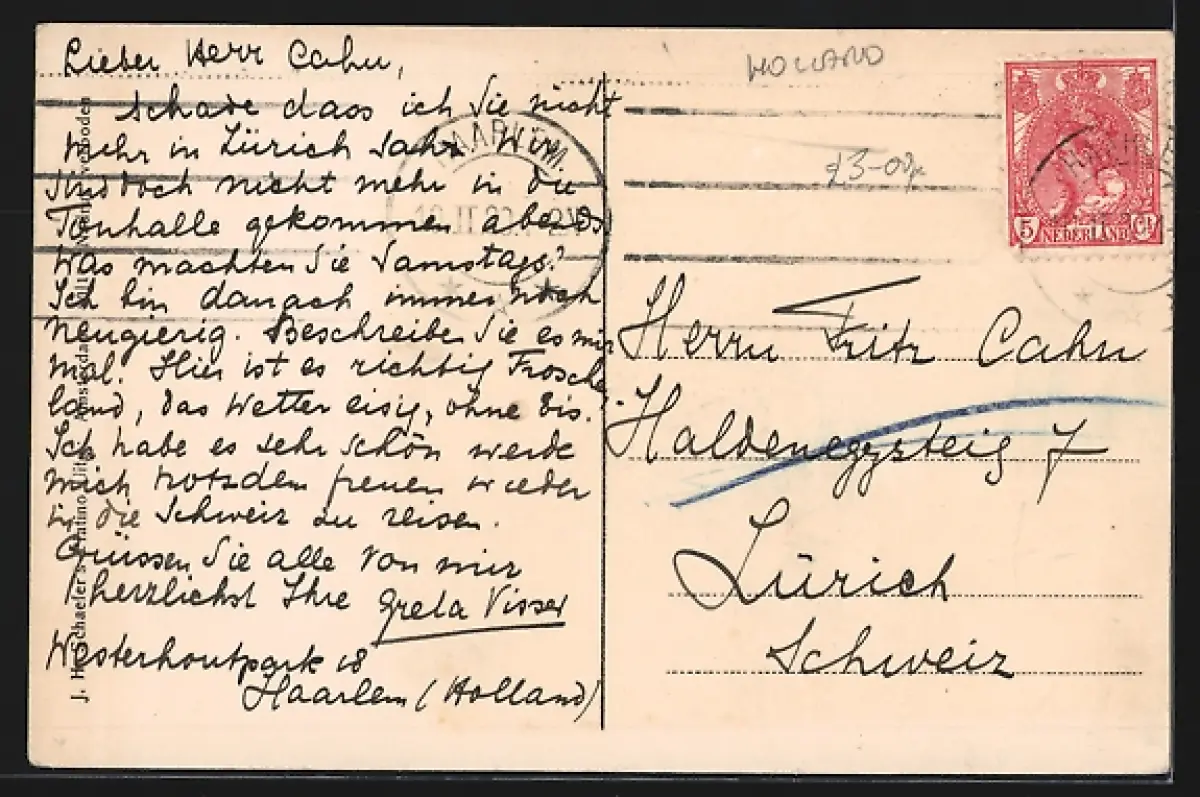 Lieber Herr Cahn,
Schade dass ich Sie nicht
mehr in Zürich sah. Wir
sind doch nicht mehr in die
Tonhalle gekommen aber
was machten Sie Samstags?
Ich bin danach immer noch
neugierig. Beschreiben Sie es mir
mal. Hier ist es richtig Frosche
land, das Wetter eisig, ohne Eis.
Ich habe es sehr schön werde
mich trotzdem freuen wieder
in die Schweiz zu reisen.
Grüssen Sie alle von mir
herzlichst Ihre Greta Visser
Westerhoutpark 18
Haarlem (Holland)
HOLLAND
£3-00
HAARLEM
5 NEDERLAND Ct
Herrn Fritz Cahn
Haldeneggsteig 7
Zürich
Schweiz
J. H. Schaefer's Platino Amsterdam